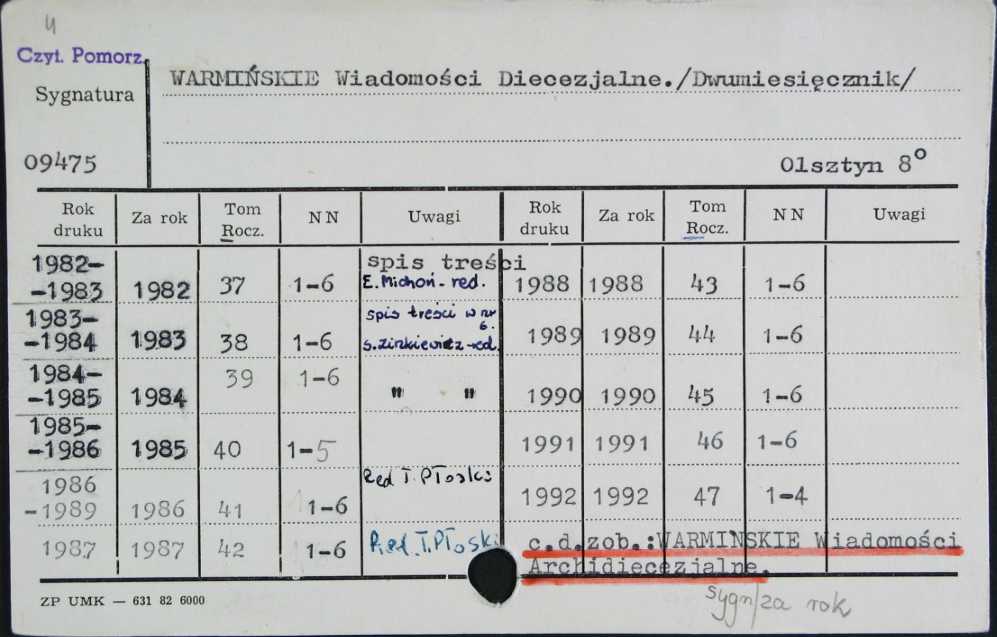 4
Czyt. Pomorz.
WARMIŃSKIE Wiadomości Diecezjalne./Dwumiesięcznik/
Sygnatura
09475
Olsztyn 8°
Rok druku Za rok Tom Rocz. NN Uwagi Rok druku Za rok Tom Rocz. NN Uwagi
1982-
-1983 1982 37 1-6 spis treści E. Michoń - red. 1988 1988 43 1-6
1983-
-1984 1983 38 1-6 spis treści w nr 6. S. Zinkiewicz-red. 1989 1989 44 1-6
1984-
-1985 1984 39 1-6 " " 1990 1990 45 1-6
1985-
-1986 1985 40 1-5 1991 1991 46 1-6
1986
-1989 1986 41 1-6 Red T. Płoski 1992 1992 47 1-4
1987 1987 42 1-6 Red. T. Płoski c.d.zob.:WARMINSKIE Wiadomości
Archidiecezjalne.
sygn/za rok
ZP UMK — 631 82 6000